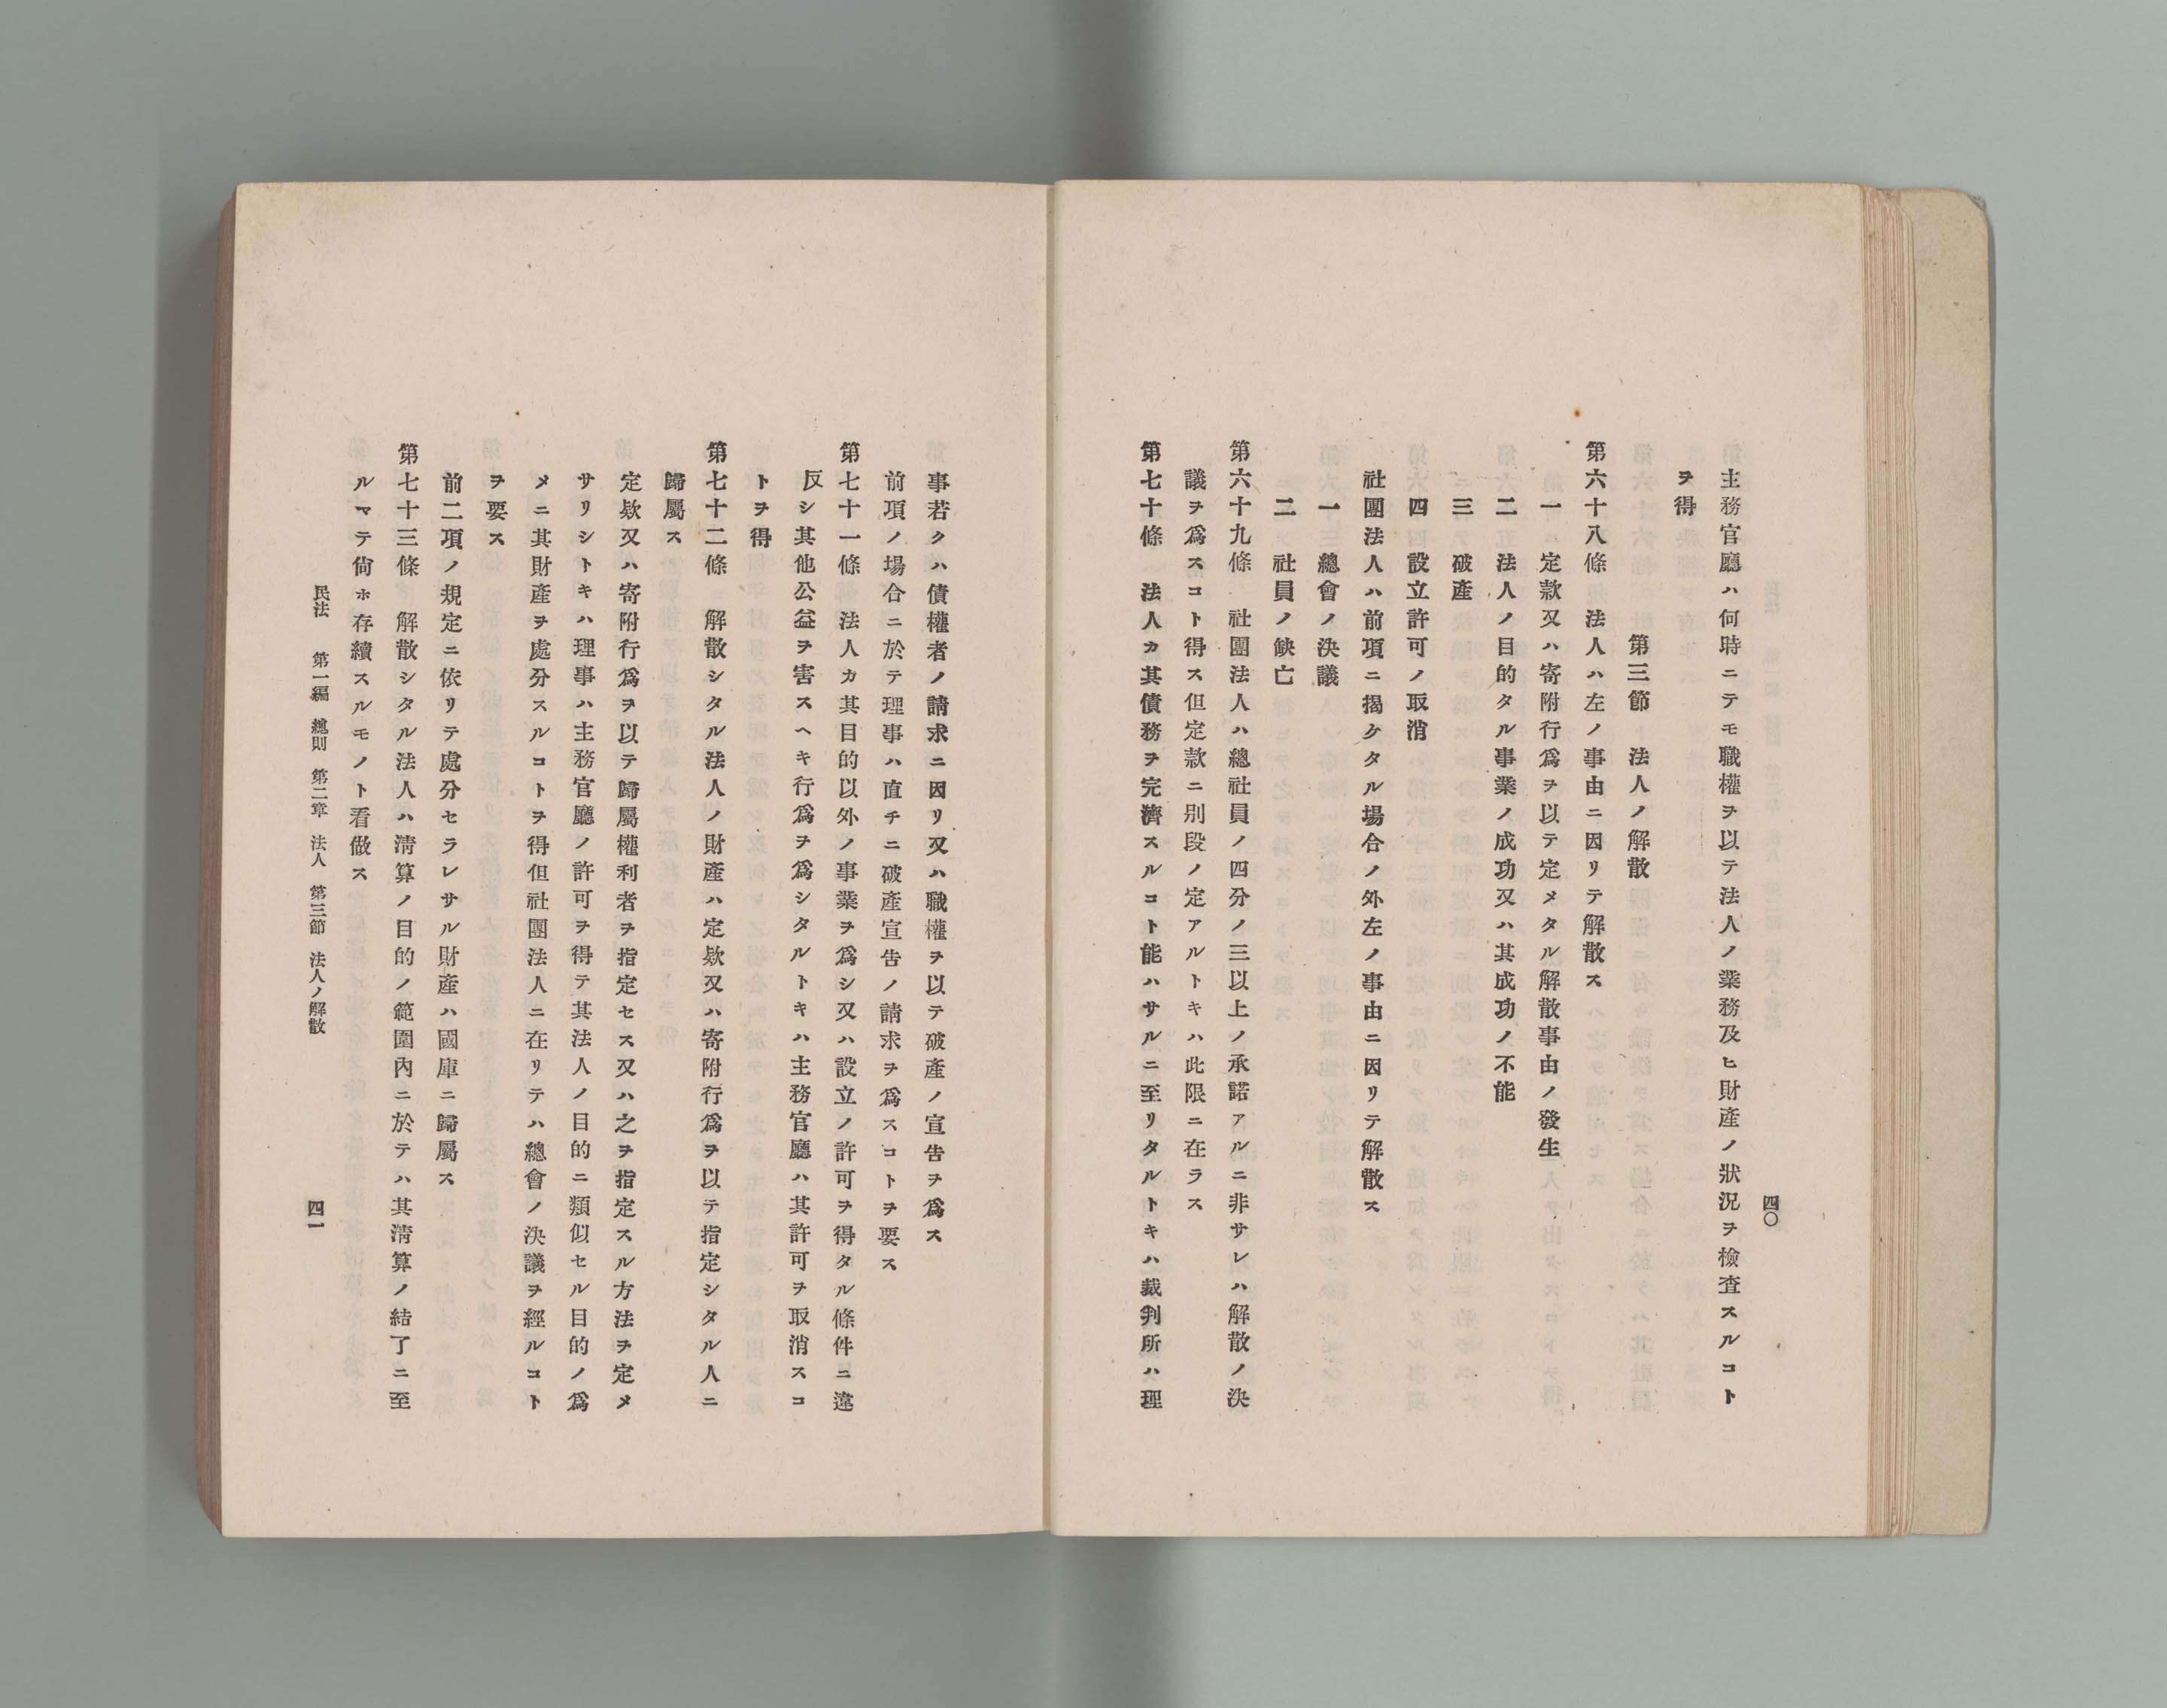 四〇
主務官廳ハ何時ニテモ職權ヲ以テ法人ノ業務及ヒ財產ノ狀況ヲ檢査スルコト
ヲ得
第三節　法人ノ解散
第六十八條　法人ハ左ノ事由ニ因リテ解散ス
一　定款又ハ寄附行爲ヲ以テ定メタル解散事由ノ發生
二　法人ノ目的タル事業ノ成功又ハ其成功ノ不能
三　破產
四　設立許可ノ取消
社團法人ハ前項ニ揭ケタル場合ノ外左ノ事由ニ因リテ解散ス
一　總會ノ決議
二　社員ノ缺亡
第六十九條　社團法人ハ總社員ノ四分ノ三以上ノ承諾アルニ非サレハ解散ノ決
議ヲ爲スコト得ス但定款ニ別段ノ定アルトキハ此限ニ在ラス
第七十條　法人カ其債務ヲ完濟スルコト能ハサルニ至リタルトキハ裁判所ハ理
事若クハ債權者ノ請求ニ因リ又ハ職權ヲ以テ破產ノ宣告ヲ爲ス
前項ノ場合ニ於テ理事ハ直チニ破產宣告ノ請求ヲ爲スコトヲ要ス
第七十一條　法人カ其目的以外ノ事業ヲ爲シ又ハ設立ノ許可ヲ得タル條件ニ違
反シ其他公益ヲ害スヘキ行爲ヲ爲シタルトキハ主務官廳ハ其許可ヲ取消スコ
トヲ得
第七十二條　解散シタル法人ノ財產ハ定欵又ハ寄附行爲ヲ以テ指定シタル人ニ
歸屬ス
定欵又ハ寄附行爲ヲ以テ歸屬權利者ヲ指定セス又ハ之ヲ指定スル方法ヲ定メ
サリシトキハ理事ハ主務官廳ノ許可ヲ得テ其法人ノ目的ニ類似セル目的ノ爲
メニ其財產ヲ處分スルコトヲ得但社團法人ニ在リテハ總會ノ決議ヲ經ルコト
ヲ要ス
前二項ノ規定ニ依リテ處分セラレサル財產ハ國庫ニ歸屬ス
第七十三條　解散シタル法人ハ淸算ノ目的ノ範圍內ニ於テハ其淸算ノ結了ニ至
ルマテ尙ホ存續スルモノト看做ス
民法　第一編　總則　第二章　法人　第三節　法人ノ解散　四一